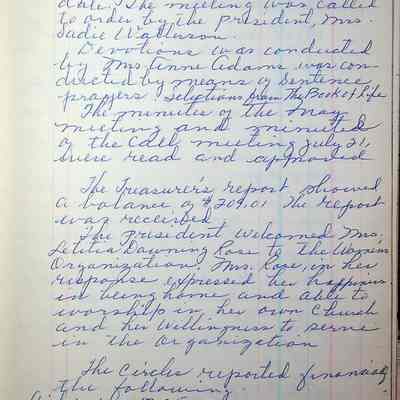 date. The meeting was called
to order by the president, Mrs.
Sadie Watterson.
Devotions was conducted
by Mrs. Adams, was con-
ducted by means of Sentence
prayers. Selections from The Book of Life
The minutes of the May
meeting and minutes
of the Call meeting July 21,
were read and approved
The Treasurer's report showed
a balance of $209.01 The report
was received.
The president welcomed Mrs.
Letitia Downing Rose to the Women's
Organization. Mrs. Rose, in her
response expressed her happiness
in being home and able to
worship in her own Church
and her willingness to serve
in the Organization
The Circles reported financially
the following.